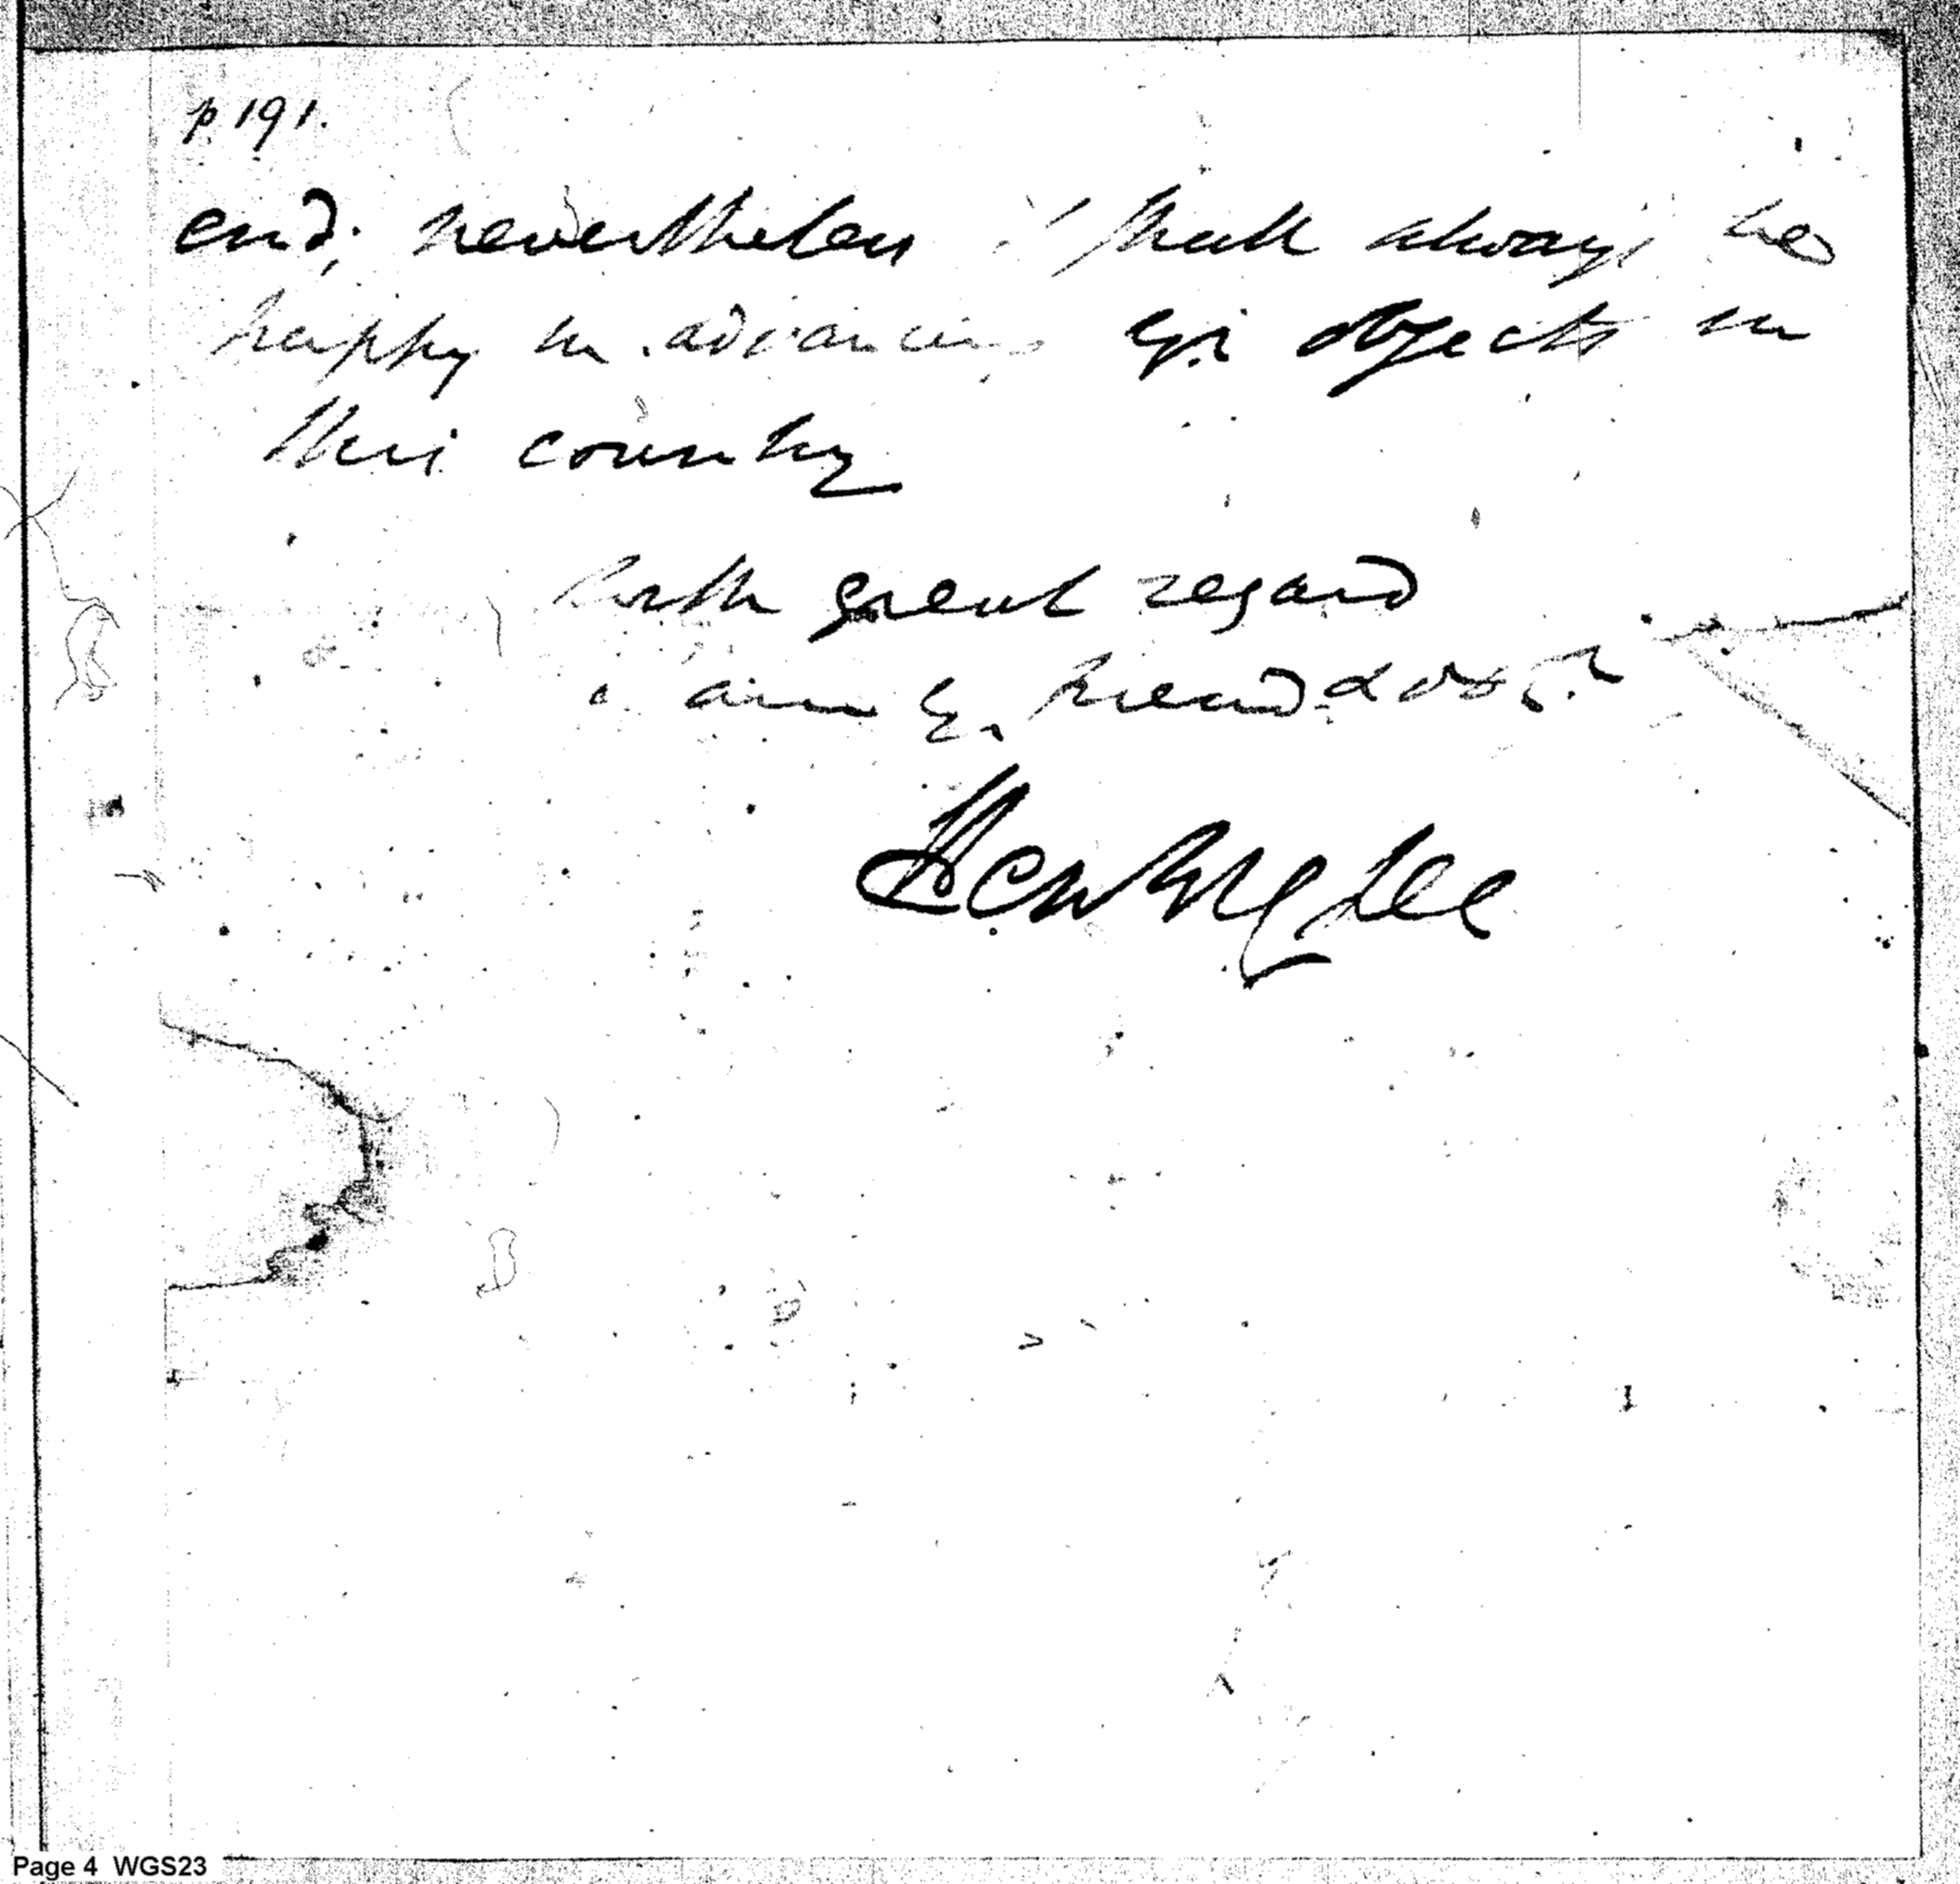 p 191.
end; nevertheless I shall always be
happy in advancing yr. objects in
this country
With great regard
I am yr. friend & ob. st.
Henry Lee
Page 4 WGS23